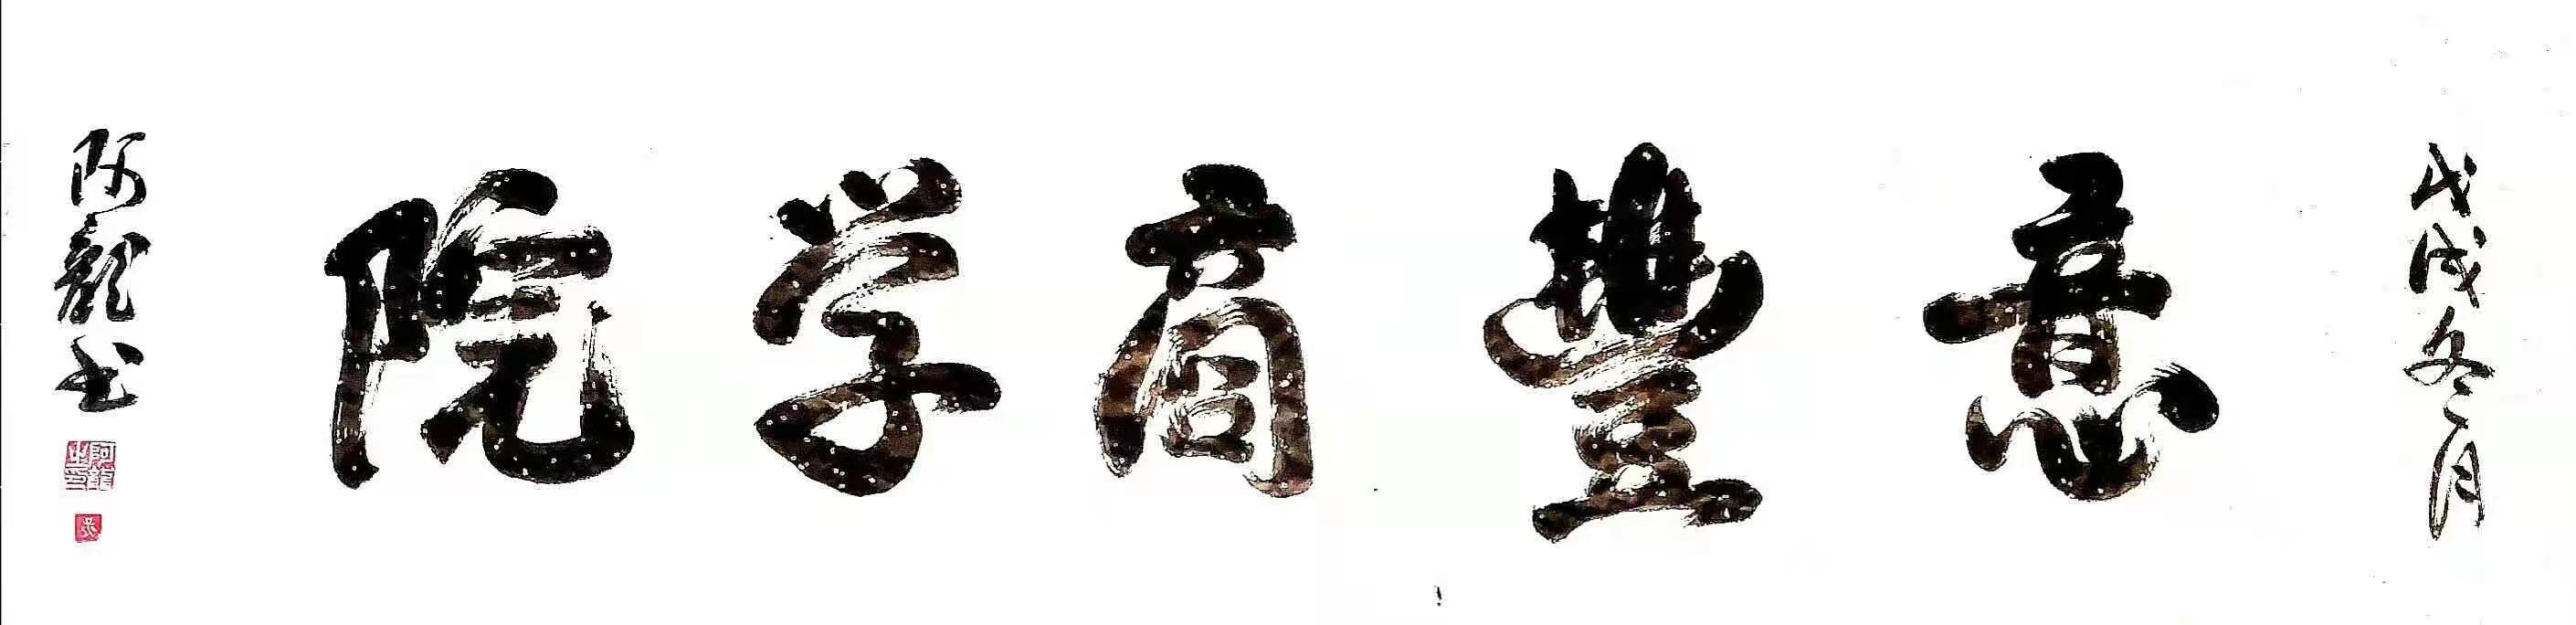 戊戌冬月
意豐商学院
阿龍书
阿龍之印